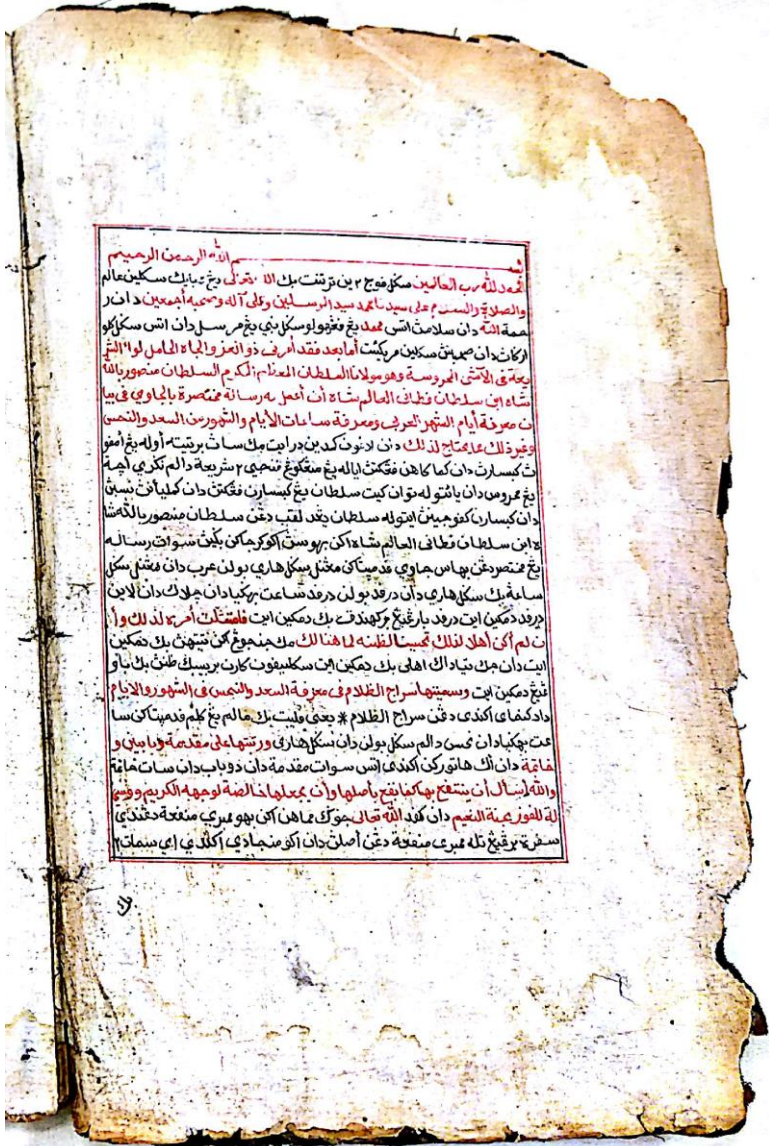 بسم الله الرحمن الرحيم
الحمد لله رب العالمين سكل فوج٢ين ترتنت بك الله تعالى يڠ سكلين عالم
والصلاة والسلام على سيدنا محمد سيد المرسلين وعلى آله وصحبه أجمعين دان ر
حمة الله دان سلامت اتس محمد يڠ ڤڠهولو سكل نبي يڠ مرسل دان اتس سكل كلو
ارگاڽ دان صحبتڽ سكلين مريكئت أما بعد فقد أمرني ذو العز والجاه الحامل لواء الشر
يعة في الآشي المحروسة وهو مولانا السلطان المعظم الكريم السلطان منصور بالله
شاه ابن سلطان قطاني العالم شاه أن أعمل له رسالة مختصرة بالجاوي في بيا
ن معرفة أيام الشهر العربي ومعرفة ساعات الأيام والشهور من السعد والنحس
وغير ذلك مما يحتاج لذلك دان اداڤون كمدين درايت مك ساڽ برتيته أوله يڠ امڤو
ڽ كبسارن دان كڤڠكتن اياله يڠ منڠكوڠ ڤنجي٢ شريعة دالم نڬري اچه
يڠ محروس دان يائت توله توان كيت سلطان يڠ كبسارن ڤڠكتن دان كمليأن نسبڽ
دان كبسارن كڤوجين ايتوله سلطان يڠ لقب دڠن سلطان منصور بالله شا
ه ابن سلطان قطاني العالم شاه اكن بهوسڽ اكو كرجاكن باڬيڽ سوات رسالة
يڠ مختصر دڠن بهاس جاوي ڤد مڽتاكن مڠنل سكل هاري بولن عرب دان مڠنل سكل
ساعة بڬ سكل هاري دان درڤد بولن درڤد ساعت بهڬيا دان چلاك دان لاين
درڤد دمكين ايت درڤد بارڠ يڠ بركهندق بڬ دمكين ايت فامتثلت أمره لذلك وأ
ن لم أكن أهلا لذلك تحسينا لظنه لما هنالك مك جنجوڠ كن تيتهڽ بڬ دمكين
ايت دان جك تياد اك اهلي بڬ دمكين اين سكليڤون كارن بربايك ظنڽ بڬ بارڠ
يڠ دمكين ايت وسميتها سراج الظلام في معرفة السعد والنحس في الشهور والايام
دان كنماي اكندي دڠن سراج الظلام * يعني ڤليت بڬ مالم يڠ كلم ڤد مڽتاكن سا
عت بهڬيا دان نحس دالم سكل بولن دان سكل هاري ورتبتها على مقدمة وبابين و
خاتمة دان اك هاتوركن اكندي اتس سوات مقدمة دان دو باب دان سات خاتمة
والله أسأل أن ينتفع بها كما نفع بأصلها وأن يجعلها خالصة لوجهه الكريم ووسي
لة للفوز بجنة النعيم دان كڤد الله تعالى جوك كڤوهن اكن بهو ممبري منفعة دڠندي
سڤرت برڤڠ تله ممبري منفعة دڠن أصلڽ دان اكو منجادي اكندي اي سمات٢
بڬ